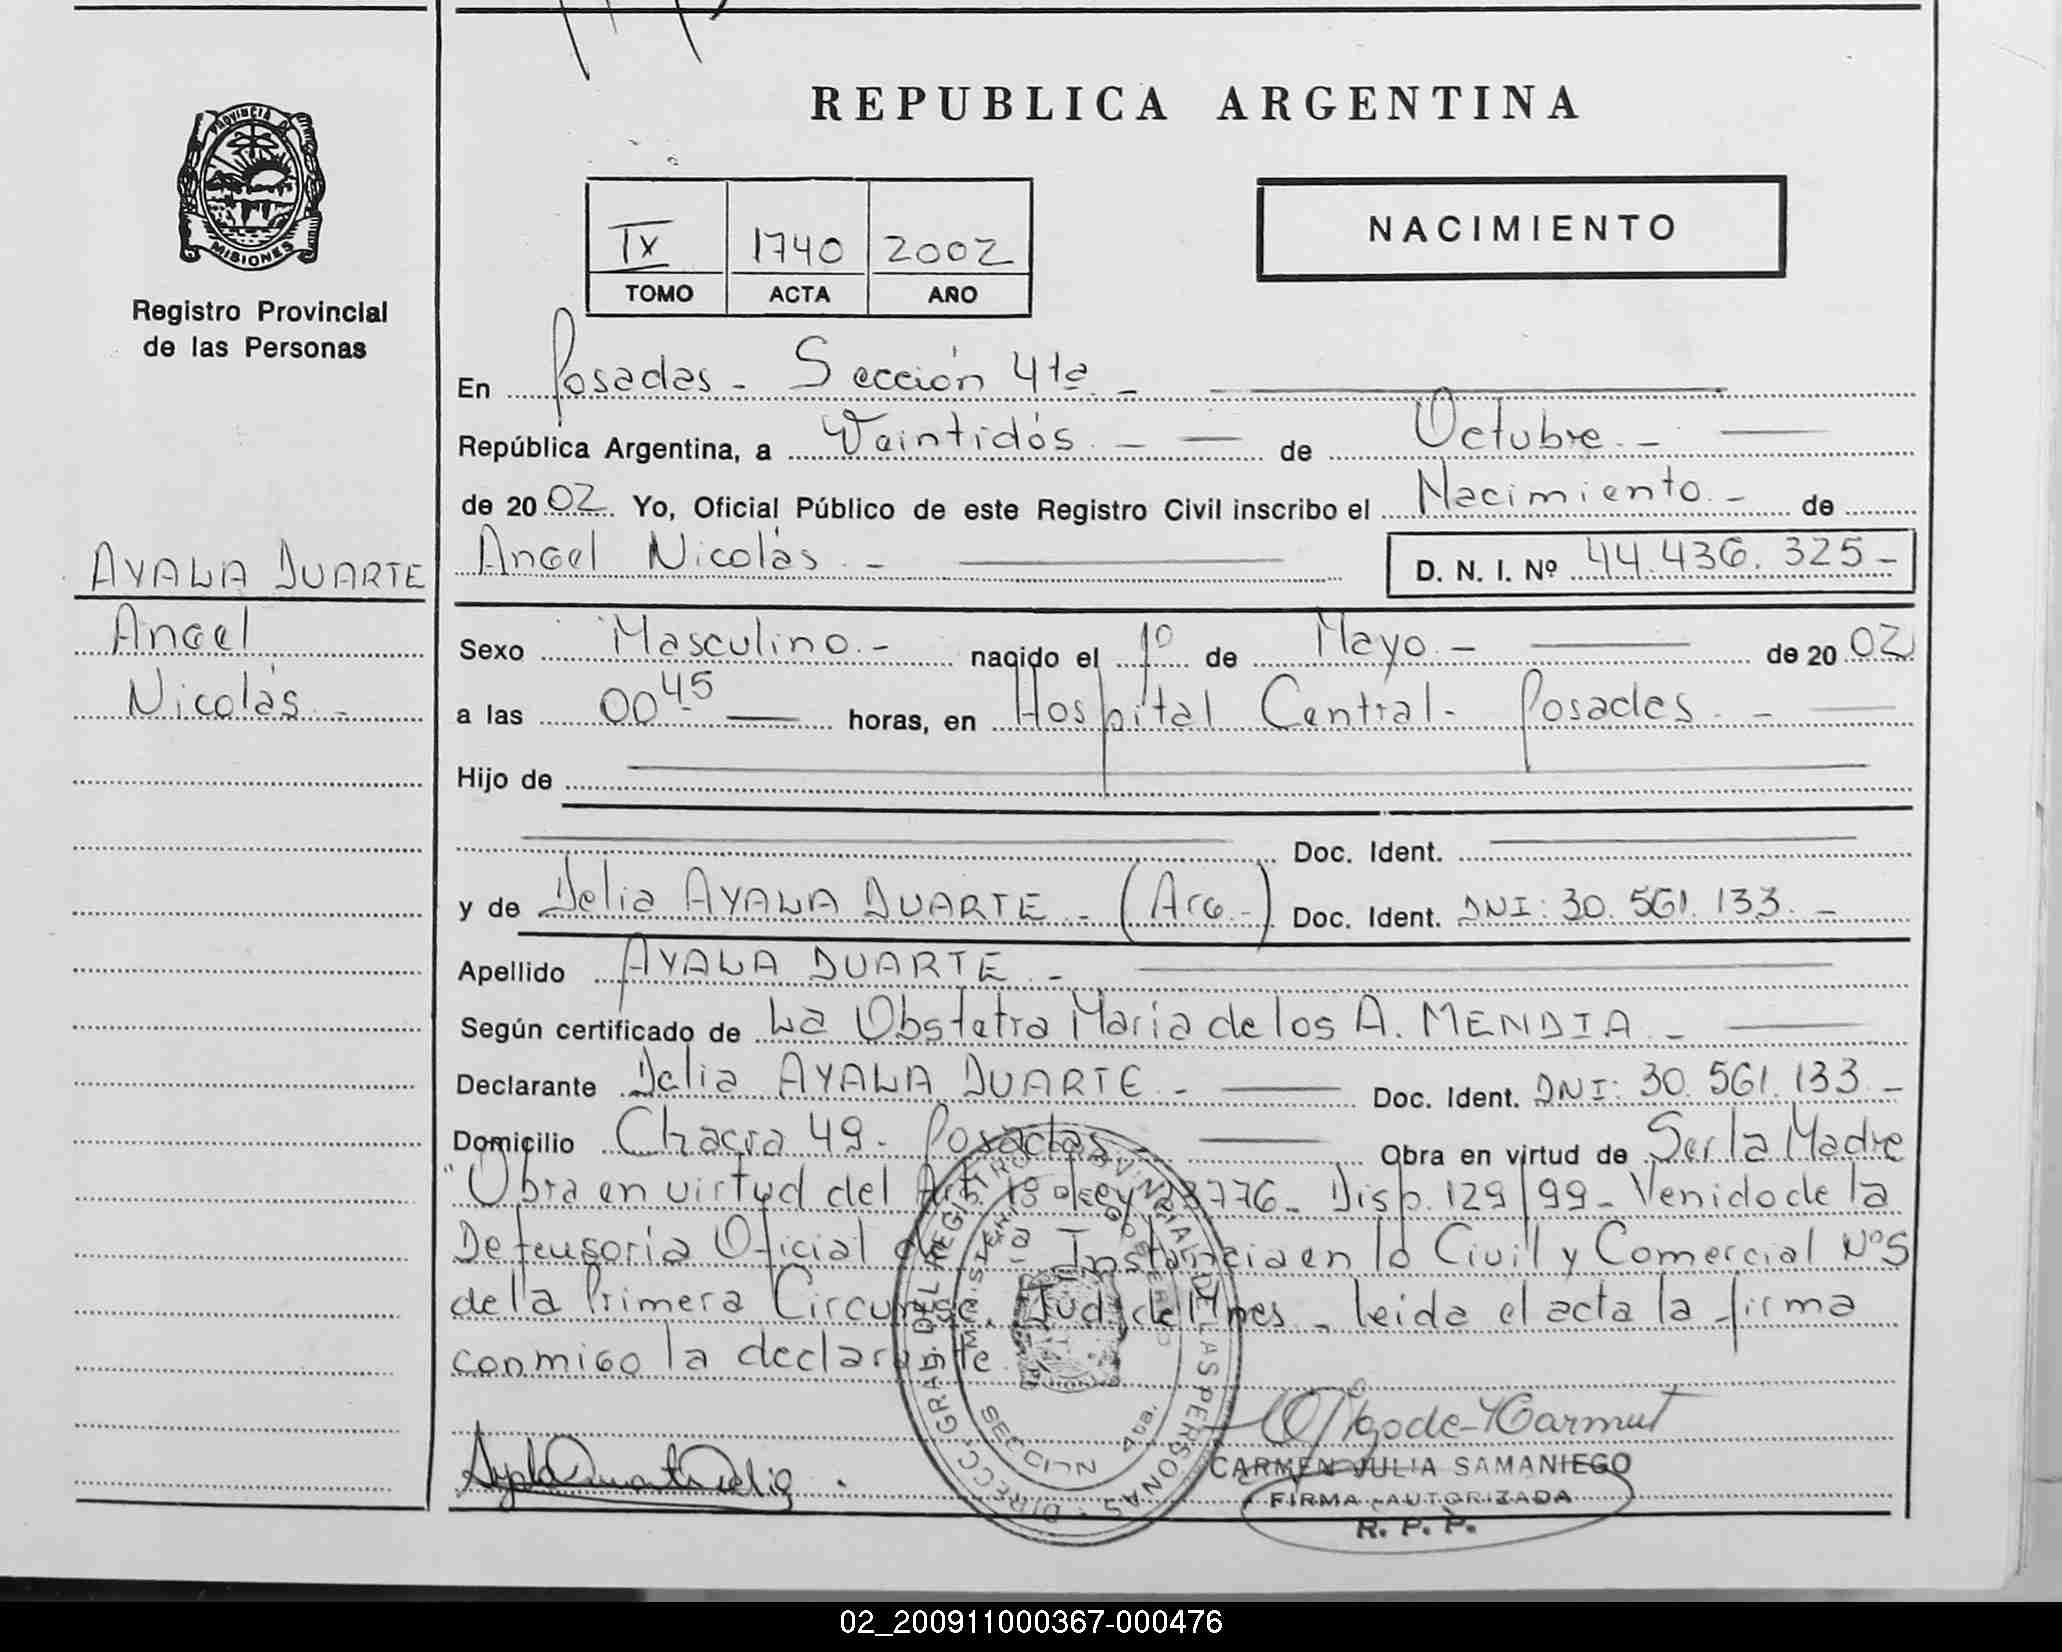 REPUBLICA ARGENTINA
PROVINCIA DE
MISIONES
Registro Provincial
de las Personas
IX 1740 2002
TOMO ACTA AÑO
NACIMIENTO
En Posadas - Sección 4ta. -
República Argentina, a Veintidós. - de Octubre. -
de 20 02 Yo, Oficial Público de este Registro Civil inscribo el Nacimiento. - de
Angel Nicolás. - D. N. I. Nº 44.436.325 -
AYALA DUARTE
Angel
Nicolás. -
Sexo Masculino. - nacido el 1º de Mayo. - de 20 02
a las 00 45 horas, en Hospital Central - Posadas. -
Hijo de
Doc. Ident.
y de Delia AYALA DUARTE - (Arg. -) Doc. Ident. DNI: 30.561.133. -
Apellido AYALA DUARTE. -
Según certificado de La Obstetra María de los A. MENDIA. -
Declarante Delia AYALA DUARTE. - Doc. Ident. DNI: 30.561.133 -
Domicilio Chacra 49 - Posadas - Obra en virtud de Ser la Madre
"Obra en virtud del Art. Ley 776 - Disp. 129/99 - Venido de la
Defensoría Oficial de Instancia en lo Civil y Comercial Nº 5
de la Primera Circunsc. Jud. de Mnes - leída el acta la firma
conmigo la declarante.
Ayala Duarte Delia.
CARMEN JULIA SAMANIEGO
FIRMA AUTORIZADA
R. P. P.
DIRECC. GRAL. DEL REGISTRO PROVINCIAL DE LAS PERSONAS
MINISTERIO DE GOBIERNO
SECCION 4ta.
02_200911000367-000476